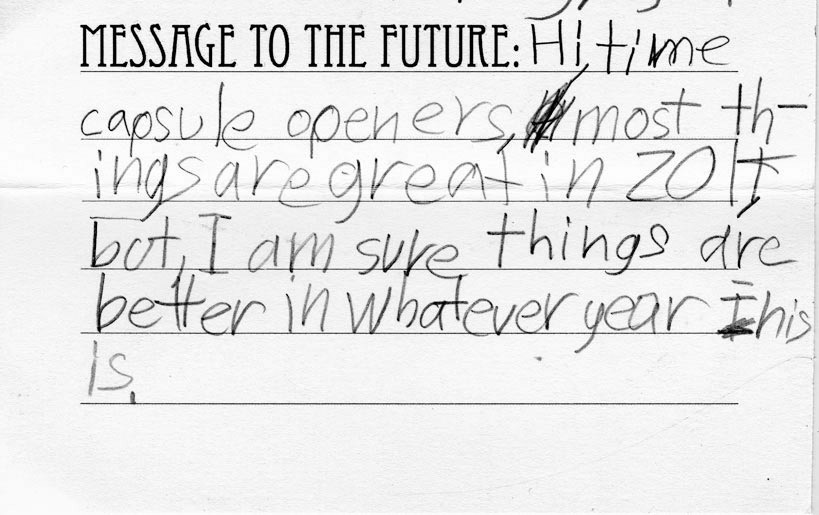 MESSAGE TO THE FUTURE: Hi, time
capsule openers, most th-
ings are great in 2017,
but, I am sure things are
better in whatever year this
is.